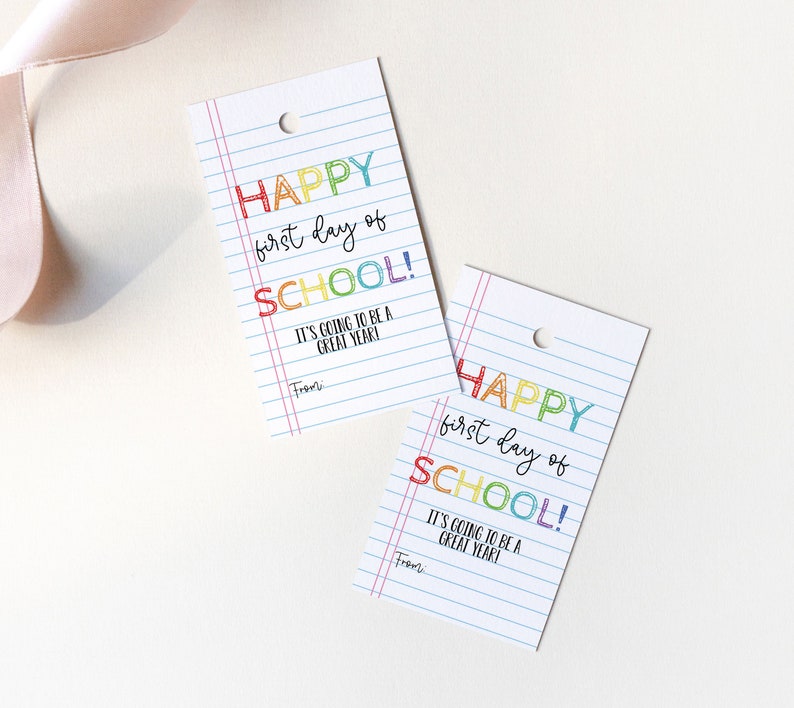 HAPPY
first day of
SCHOOL!
IT'S GOING TO BE A
GREAT YEAR!
From:
HAPPY
first day of
SCHOOL!
IT'S GOING TO BE A
GREAT YEAR!
From: